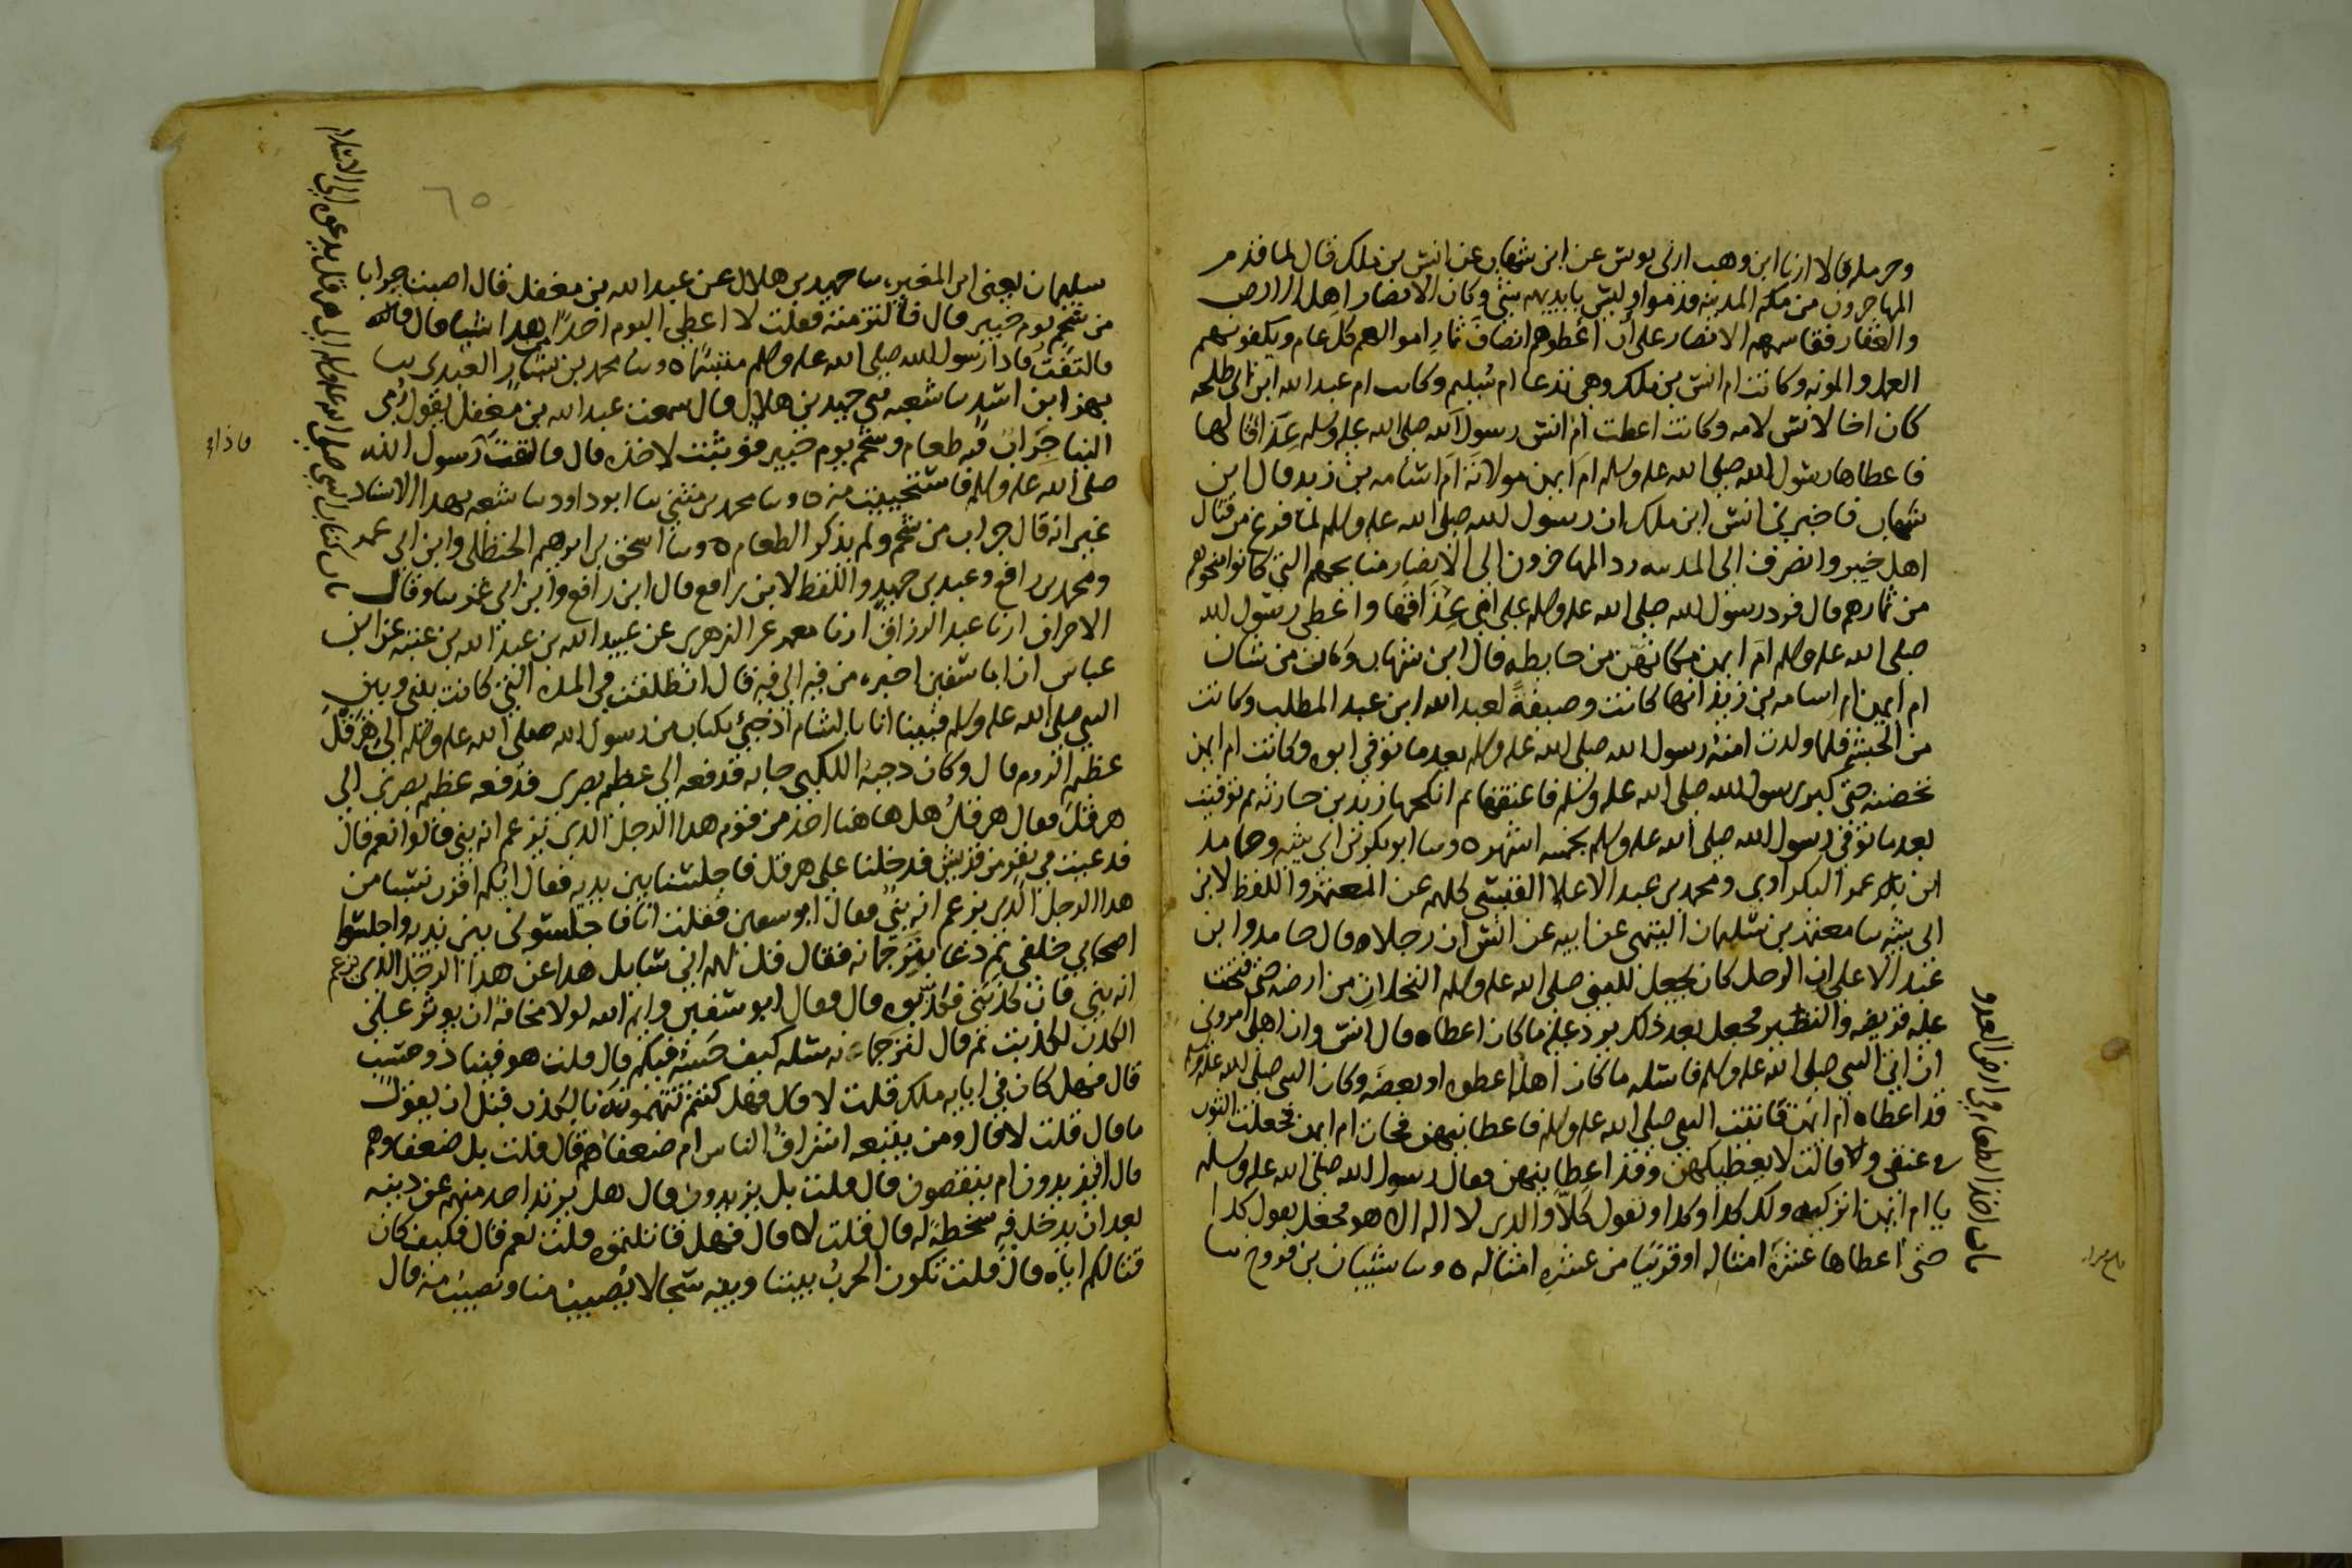 وحرمله قالا انا ابن وهب اخبرني يونس عن ابن شهاب عن انس بن ملك قال لما قدم
المهاجرون من مكة المدينه قدموا وليس بايديهم شي وكان الانصار اهل الارض
والعقار فقاسمهم الانصار على ان اعطوهم انصاف ثمار اموالهم كل عام ويكفونهم
العمل والمونه وكانت ام انس بن ملك وهي تدعا ام سليم وكانت ام عبد الله ابن ابي طلحه
كان اخا لانس لامه وكانت اعطت ام انس رسول الله صلى الله عليه وسلم عذاقا لها
فاعطاها رسول الله صلى الله عليه وسلم ام ايمن مولاته ام اسامه بن زيد قال ابن
شهاب فاخبرني انس ابن ملك ان رسول الله صلى الله عليه وسلم لما فرغ من قتال
اهل خيبر وانصرف الى المدينه رد المهاجرون الى الانصار منايحهم التي كانوا منحوهم
من ثمارهم قال فرد رسول الله صلى الله عليه وسلم على امي عذاقها واعطى رسول الله
صلى الله عليه وسلم ام ايمن مكانهن من حايطه قال ابن شهاب وكان من شان
ام ايمن ام اسامه بن زيد انها كانت وصيفة لعبد الله ابن عبد المطلب وكانت
من الحبش فلما ولدت امنة رسول الله صلى الله عليه وسلم بعد ما توفي ابوه وكانت ام ايمن
تحضنه حتى كبر رسول الله صلى الله عليه وسلم فاعتقها ثم انكحها زيد بن حارثه ثم توفيت
بعد ما توفي رسول الله صلى الله عليه وسلم بخمسه اشهر ٥ وسا ابو بكر بن ابي شيبه وحامد
ابن عمر البكراوي ومحمد بن عبد الاعلا القيسي كلهم عن المعتمر واللفظ لابن
ابي شيبه سا معتمر بن سليمان التيمي عن ابيه عن انس ان رجلا وقال حامد وابن
عبد الاعلى ان الرجل كان يجعل للنبي صلى الله عليه وسلم النخلات من ارضه حتى فتحت
عليه قريظه والنضير فجعل بعد ذلك يرد عليه ما كان اعطاه قال انس وان اهلي امروني
ان اتي النبي صلى الله عليه وسلم فاسله ما كان اهله اعطوه او بعضه وكان النبي صلى الله عليه وسلم
قد اعطاه ام ايمن فاتيت النبي صلى الله عليه وسلم فاعطانيهن فجات ام ايمن فجعلت الثوب
في عنقي وقالت لا يعطيكهن وقد اعطانيهن فقال رسول الله صلى الله عليه وسلم
يا ام ايمن اتركيه ولك كذا وكذا وتقول كلا والذي لا اله الا هو فجعل يقول كذا
حتى اعطاها عشرة امثاله او قريبا من عشره امثاله ٥ وسا شيبان بن فروخ سا
باب اخذ الطعام في ارض العدو
٦٥
سليمان يعني ابن المغيره سا حميد بن هلال عن عبد الله بن مغفل قال اصبت جرابا
من شحم يوم خيبر قال فالتزمته فقلت لا اعطي اليوم احدا من هذا شيا قال
فالتفت فاذا رسول الله صلى الله عليه وسلم متبسما ٥ وسا محمد بن بشار العبدي سا
بهز ابن اسد سا شعبه حدثني حميد بن هلال قال سمعت عبد الله بن مغفل يقول رمي
الينا جراب فيه طعام وشحم يوم خيبر فوثبت لاخذه قال فالتفت رسول الله
صلى الله عليه وسلم فاستحييت منه ٥ وسا محمد بن مثنى سا ابو داود سا شعبه بهذا الاسناد
غير انه قال جراب من شحم ولم يذكر الطعام ٥ وسا اسحق بن ابرهيم الحنظلي وابن ابي عمر
ومحمد بن رافع وعبد بن حميد واللفظ لابن رافع قال ابن رافع وابن ابي عمر سا وقال
الاخران انا عبد الرزاق انا معمر عن الزهري عن عبيد الله بن عبد الله بن عتبه عن ابن
عباس ان ابا سفين اخبره من فيه الى فيه قال انطلقت في المده التي كانت بيني وبين
النبي صلى الله عليه وسلم فبينا انا بالشام اذ جيء بكتاب من رسول الله صلى الله عليه وسلم الى هرقل
عظيم الروم قال وكان دحية الكلبي جا به فدفعه الى عظيم بصرى فدفعه عظيم بصرى الى
هرقل فقال هرقل هل هاهنا احد من قوم هذا الرجل الذي يزعم انه نبي قالوا نعم قال
فدعيت في نفر من قريش فدخلنا على هرقل فاجلسنا بين يديه فقال ايكم اقرب نسبا من
هذا الرجل الذي يزعم انه نبي فقال ابو سفين فقلت انا فاجلسوني بين يديه واجلسوا
اصحابي خلفي ثم دعا بترجمانه فقال قل لهم اني سايل هذا عن هذا الرجل الذي يزعم
انه نبي فان كذبني فكذبوه قال فقال ابو سفين وايم الله لولا مخافة ان يوثر علي
الكذب لكذبت ثم قال لترجمانه سله كيف حسبه فيكم قال قلت هو فينا ذو حسب
قال فهل كان في ابايه ملك قلت لا قال فهل كنتم تتهمونه بالكذب قبل ان يقول
ما قال قلت لا قال ومن يتبعه اشراف الناس ام ضعفاهم قال قلت بل ضعفاوهم
قال ايزيدون ام ينقصون قال قلت بل يزيدون قال هل يرتد احد منهم عن دينه
بعد ان يدخل فيه سخطة له قال قلت لا قال فهل قاتلتموه قلت نعم قال فكيف كان
قتالكم اياه قال قلت تكون الحرب بيننا وبينه سجالا يصيب منا ونصيب منه قال
باب كتاب النبي صلى الله عليه وسلم الى هرقل يدعوه الى الاسلام